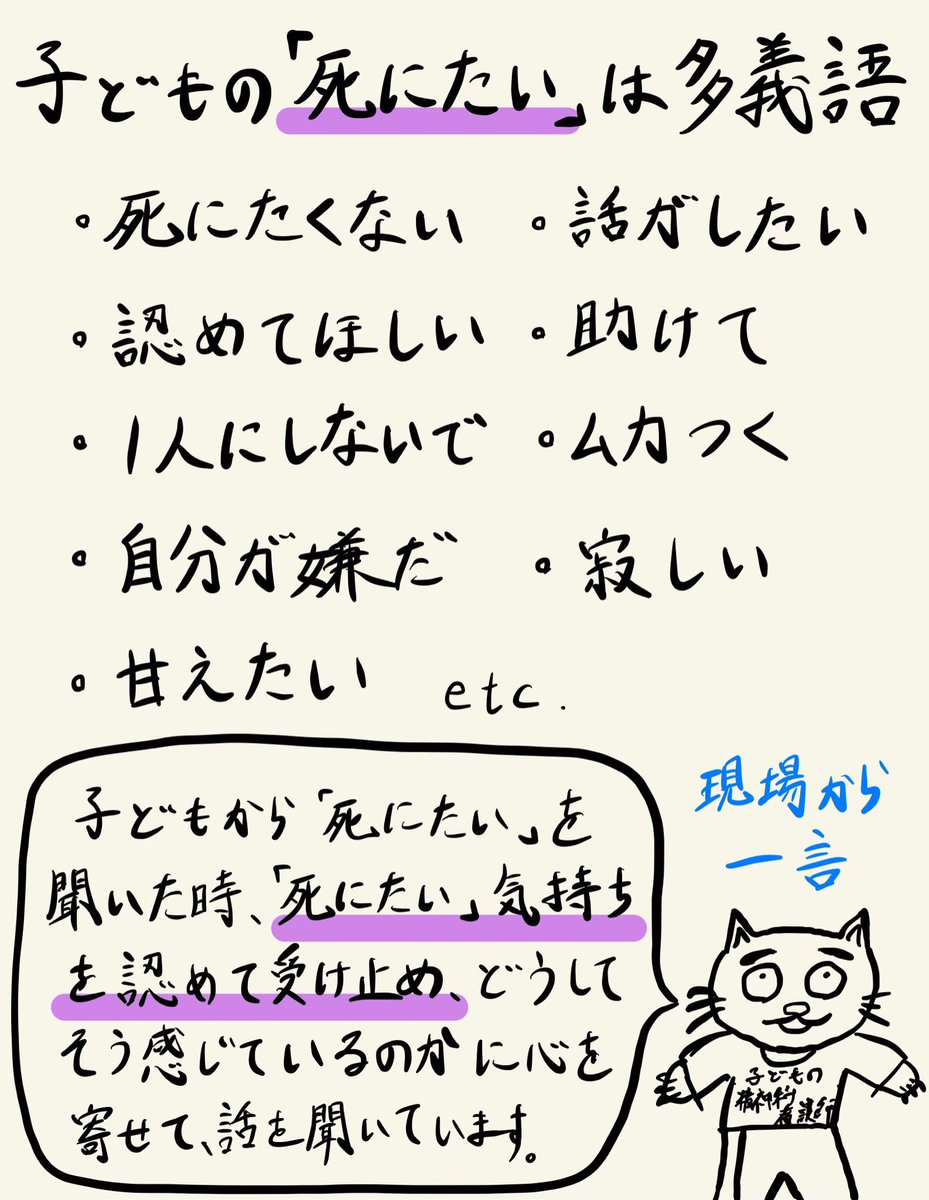 子どもの「死にたい」は多義語
・死にたくない ・話がしたい
・認めてほしい ・助けて
・1人にしないで ・ムカつく
・自分が嫌だ ・寂しい
・甘えたい etc.
子どもから「死にたい」を
聞いた時、「死にたい」気持ち
を認めて受け止め、どうして
そう感じているのかに心を
寄せて、話を聞いています。
現場から
一言
子どもの
精神科
看護師